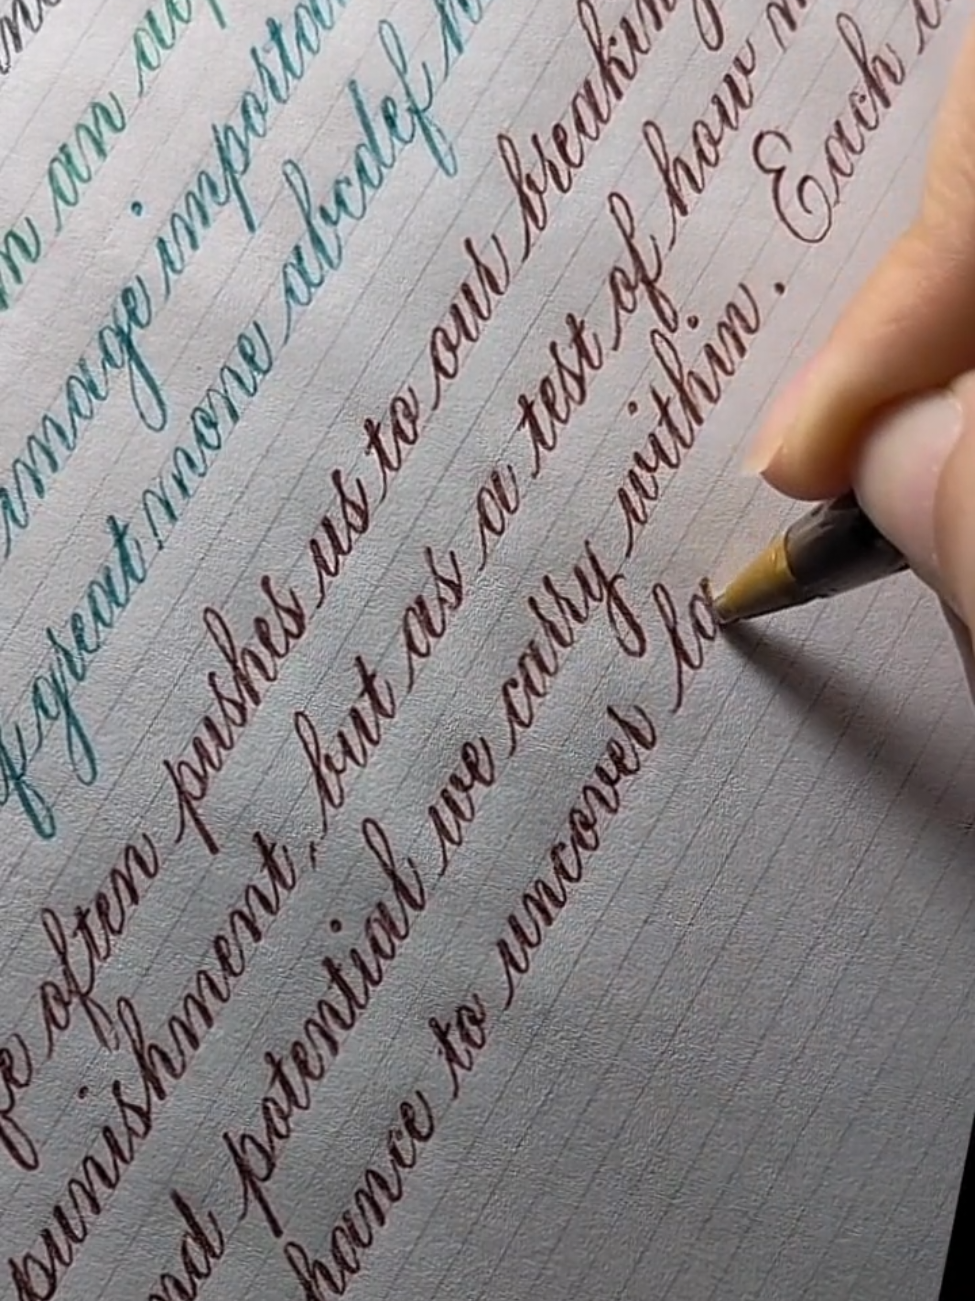 an
image
great more abcdef
often pushes us to our breaking
punishment, but as a test of how
potential we carry within. Each
to uncover